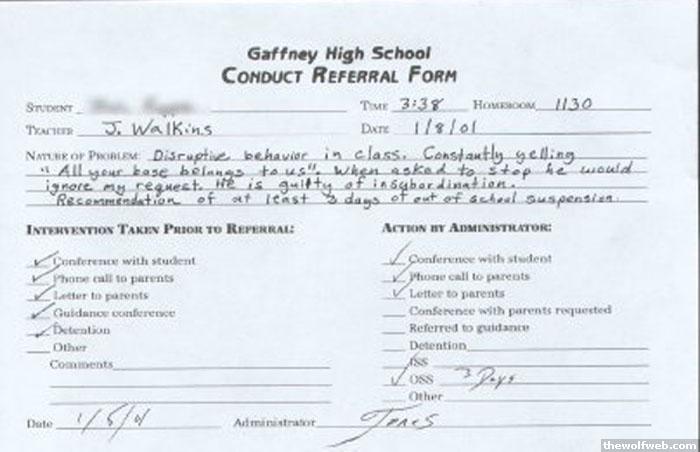 Gaffney High School
CONDUCT REFERRAL FORM
STUDENT TIME 3:38 HOMEROOM 1130
TEACHER J. Walkins DATE 1/8/01
NATURE OF PROBLEM: Disruptive behavior in class. Constantly yelling
"All your base belongs to us". When asked to stop he would
ignore my request. He is guilty of insubordination.
Recommendation of at least 3 days of out of school suspension.
INTERVENTION TAKEN PRIOR TO REFERRAL: ACTION BY ADMINISTRATOR:
Conference with student Conference with student
Phone call to parents Phone call to parents
Letter to parents Letter to parents
Guidance conference Conference with parents requested
Detention Referred to guidance
Other Detention
Comments ISS
OSS 3 Days
Other
Date 1/8/01 Administrator Jones
thewolfweb.com